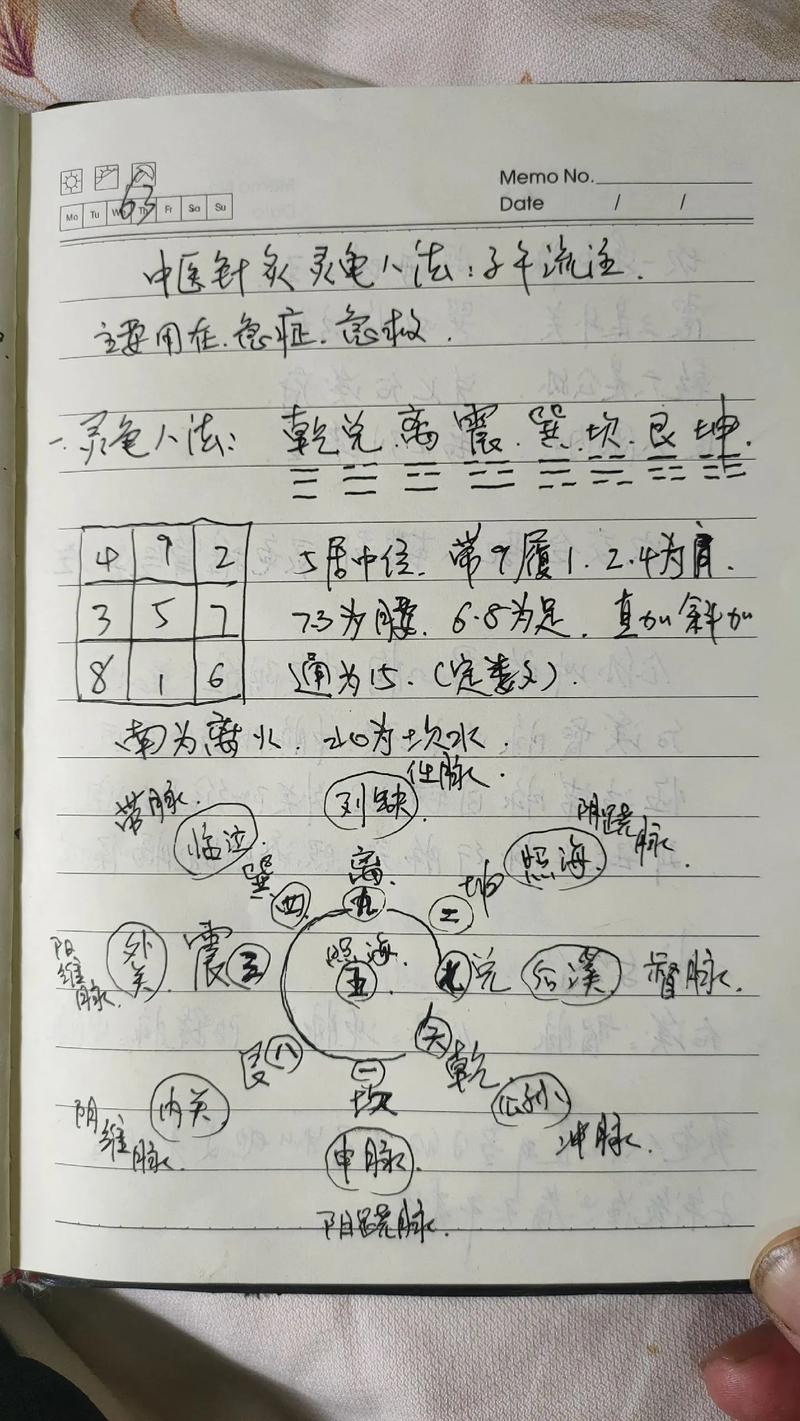 Memo No.
Mo Tu W Th Fr Sa Su
Date / /
63
中医针灸灵龟八法:子午流注.
主要用在.急症.急救.
一.灵龟八法: 乾兑.离震.巽.坎.艮坤.
☰ ☱ ☲ ☳ ☴ ☵ ☶ ☷
4 9 2
3 5 7
8 1 6
5居中位.带9履1.2.4为肩.
7.3为腰.6.8为足.直加斜加
通为15.(定数文).
南为离火.北为坎水.
带脉.
临泣
列缺
任脉.
照海
阴跷脉.
巽 四
离 九
坤 二
阳维脉.
外关
震 三
照海
五
七 兑
后溪
督脉.
艮 八
一
坎
六
乾
公孙
冲脉.
内关
阴维脉.
申脉
阳跷脉.